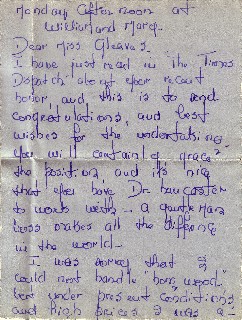 Monday afternoon at
William and Mary.
Dear Miss Gleaves.
I have just read in the Times
Dispatch about your recent
honor, and this is to send
congratulations, and best
wishes for the undertaking.
You will certainly grace
the position, and it's nice
that you have Dr. Lancaster
to work with - a gentleman
boss makes all the difference
in the world -
I was sorry that
could not handle
but under present conditions
and high prices I was a -